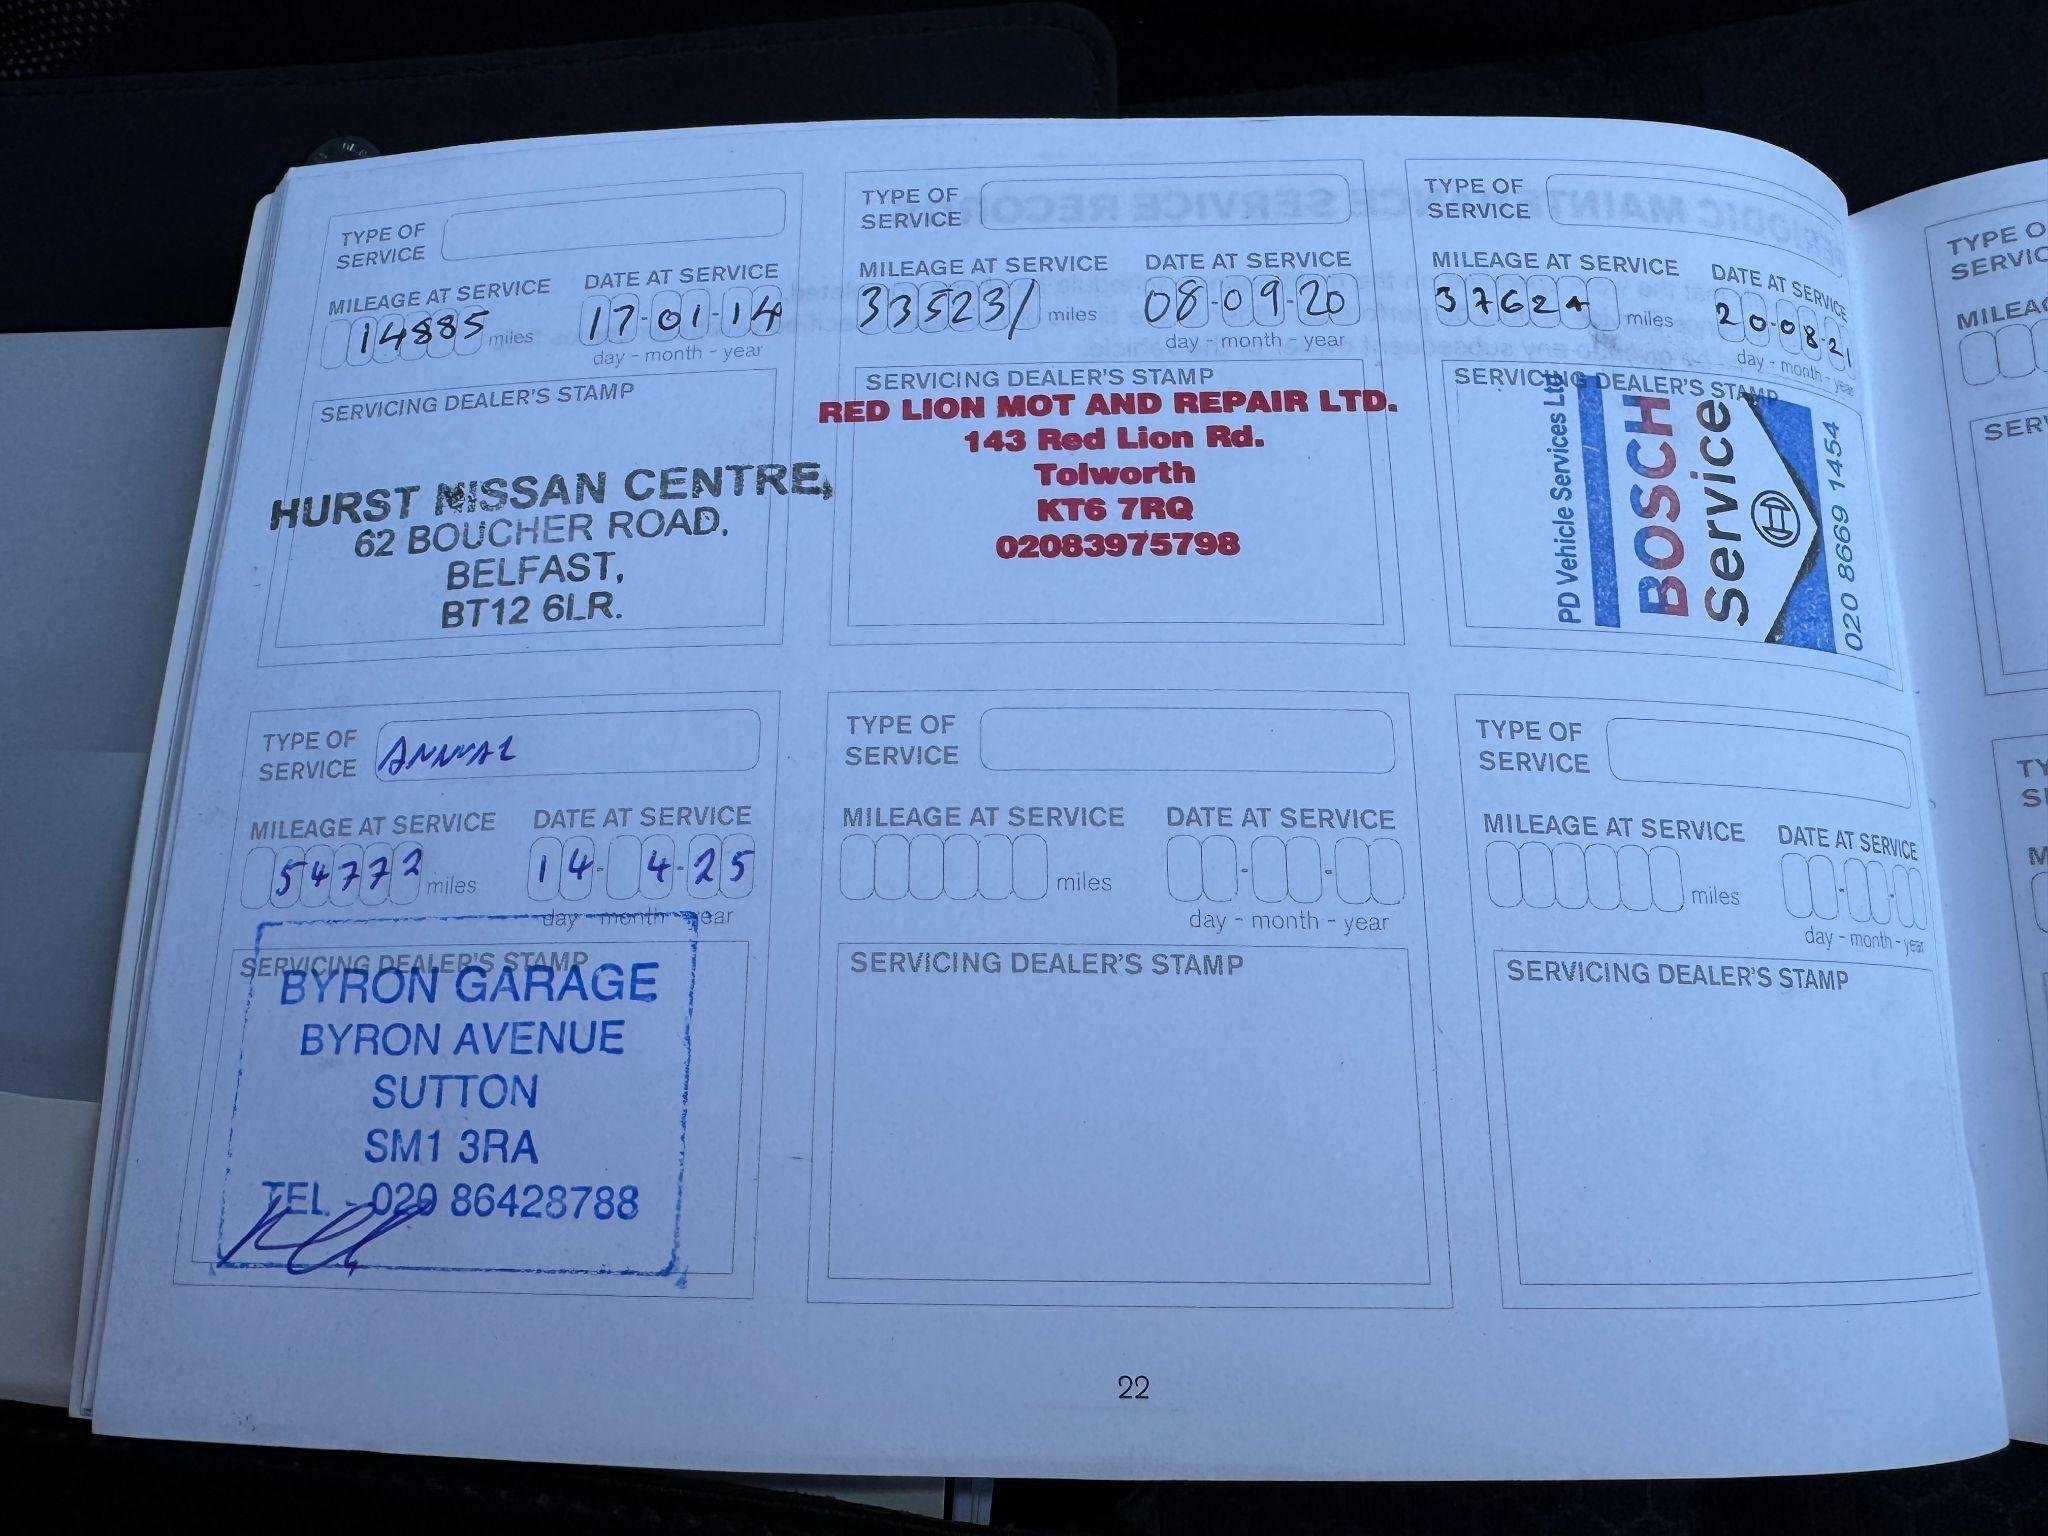 TYPE OF
SERVICE
MILEAGE AT SERVICE
DATE AT SERVICE
14885 miles
17-01-14
day - month - year
SERVICING DEALER'S STAMP
HURST NISSAN CENTRE,
62 BOUCHER ROAD,
BELFAST,
BT12 6LR.
TYPE OF
SERVICE
MILEAGE AT SERVICE
DATE AT SERVICE
33523/ miles
08-09-20
day - month - year
SERVICING DEALER'S STAMP
RED LION MOT AND REPAIR LTD.
143 Red Lion Rd.
Tolworth
KT6 7RQ
02083975798
TYPE OF
SERVICE
MILEAGE AT SERVICE
DATE AT SERVICE
37624 miles
20-08-21
day - month - year
SERVICING DEALER'S STAMP
PD Vehicle Services Ltd
BOSCH
Service
020 8669 1454
TYPE OF
SERVICE ANNUAL
MILEAGE AT SERVICE
DATE AT SERVICE
54772 miles
14- 4-25
day - month - year
SERVICING DEALER'S STAMP
BYRON GARAGE
BYRON AVENUE
SUTTON
SM1 3RA
TEL - 020 86428788
TYPE OF
SERVICE
MILEAGE AT SERVICE
DATE AT SERVICE
miles
day - month - year
SERVICING DEALER'S STAMP
TYPE OF
SERVICE
MILEAGE AT SERVICE
DATE AT SERVICE
miles
day - month - year
SERVICING DEALER'S STAMP
22